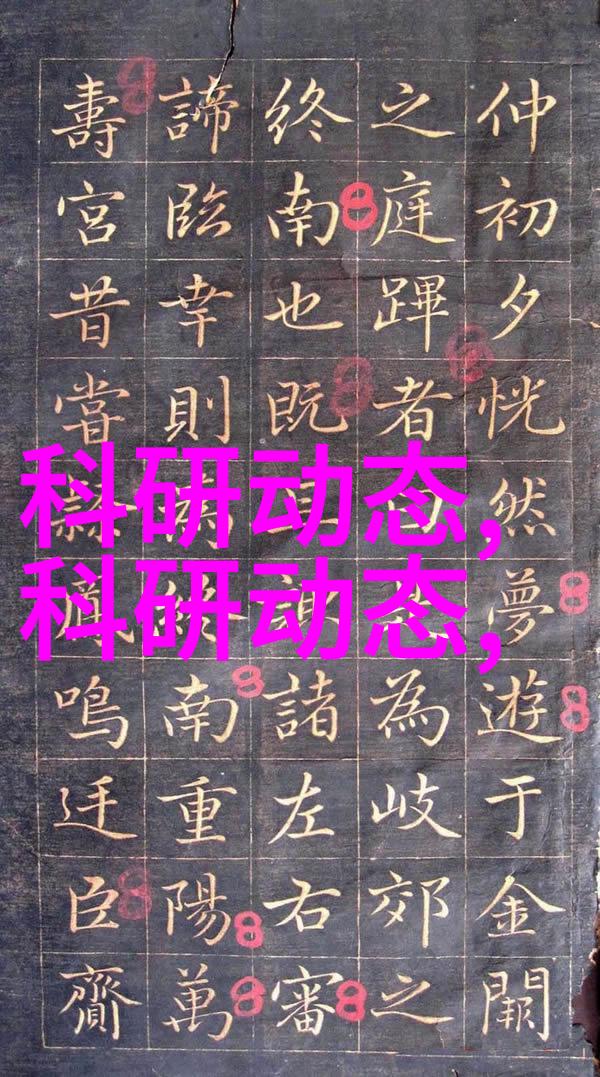 仲初夕恍然夢遊于金闕
之庭蹕者曰為岐郊之
終南也既諸左右審
諦臨幸則終南重陽萬
壽宮昔嘗鳴廷臣齎
科研动态,
科研动态,